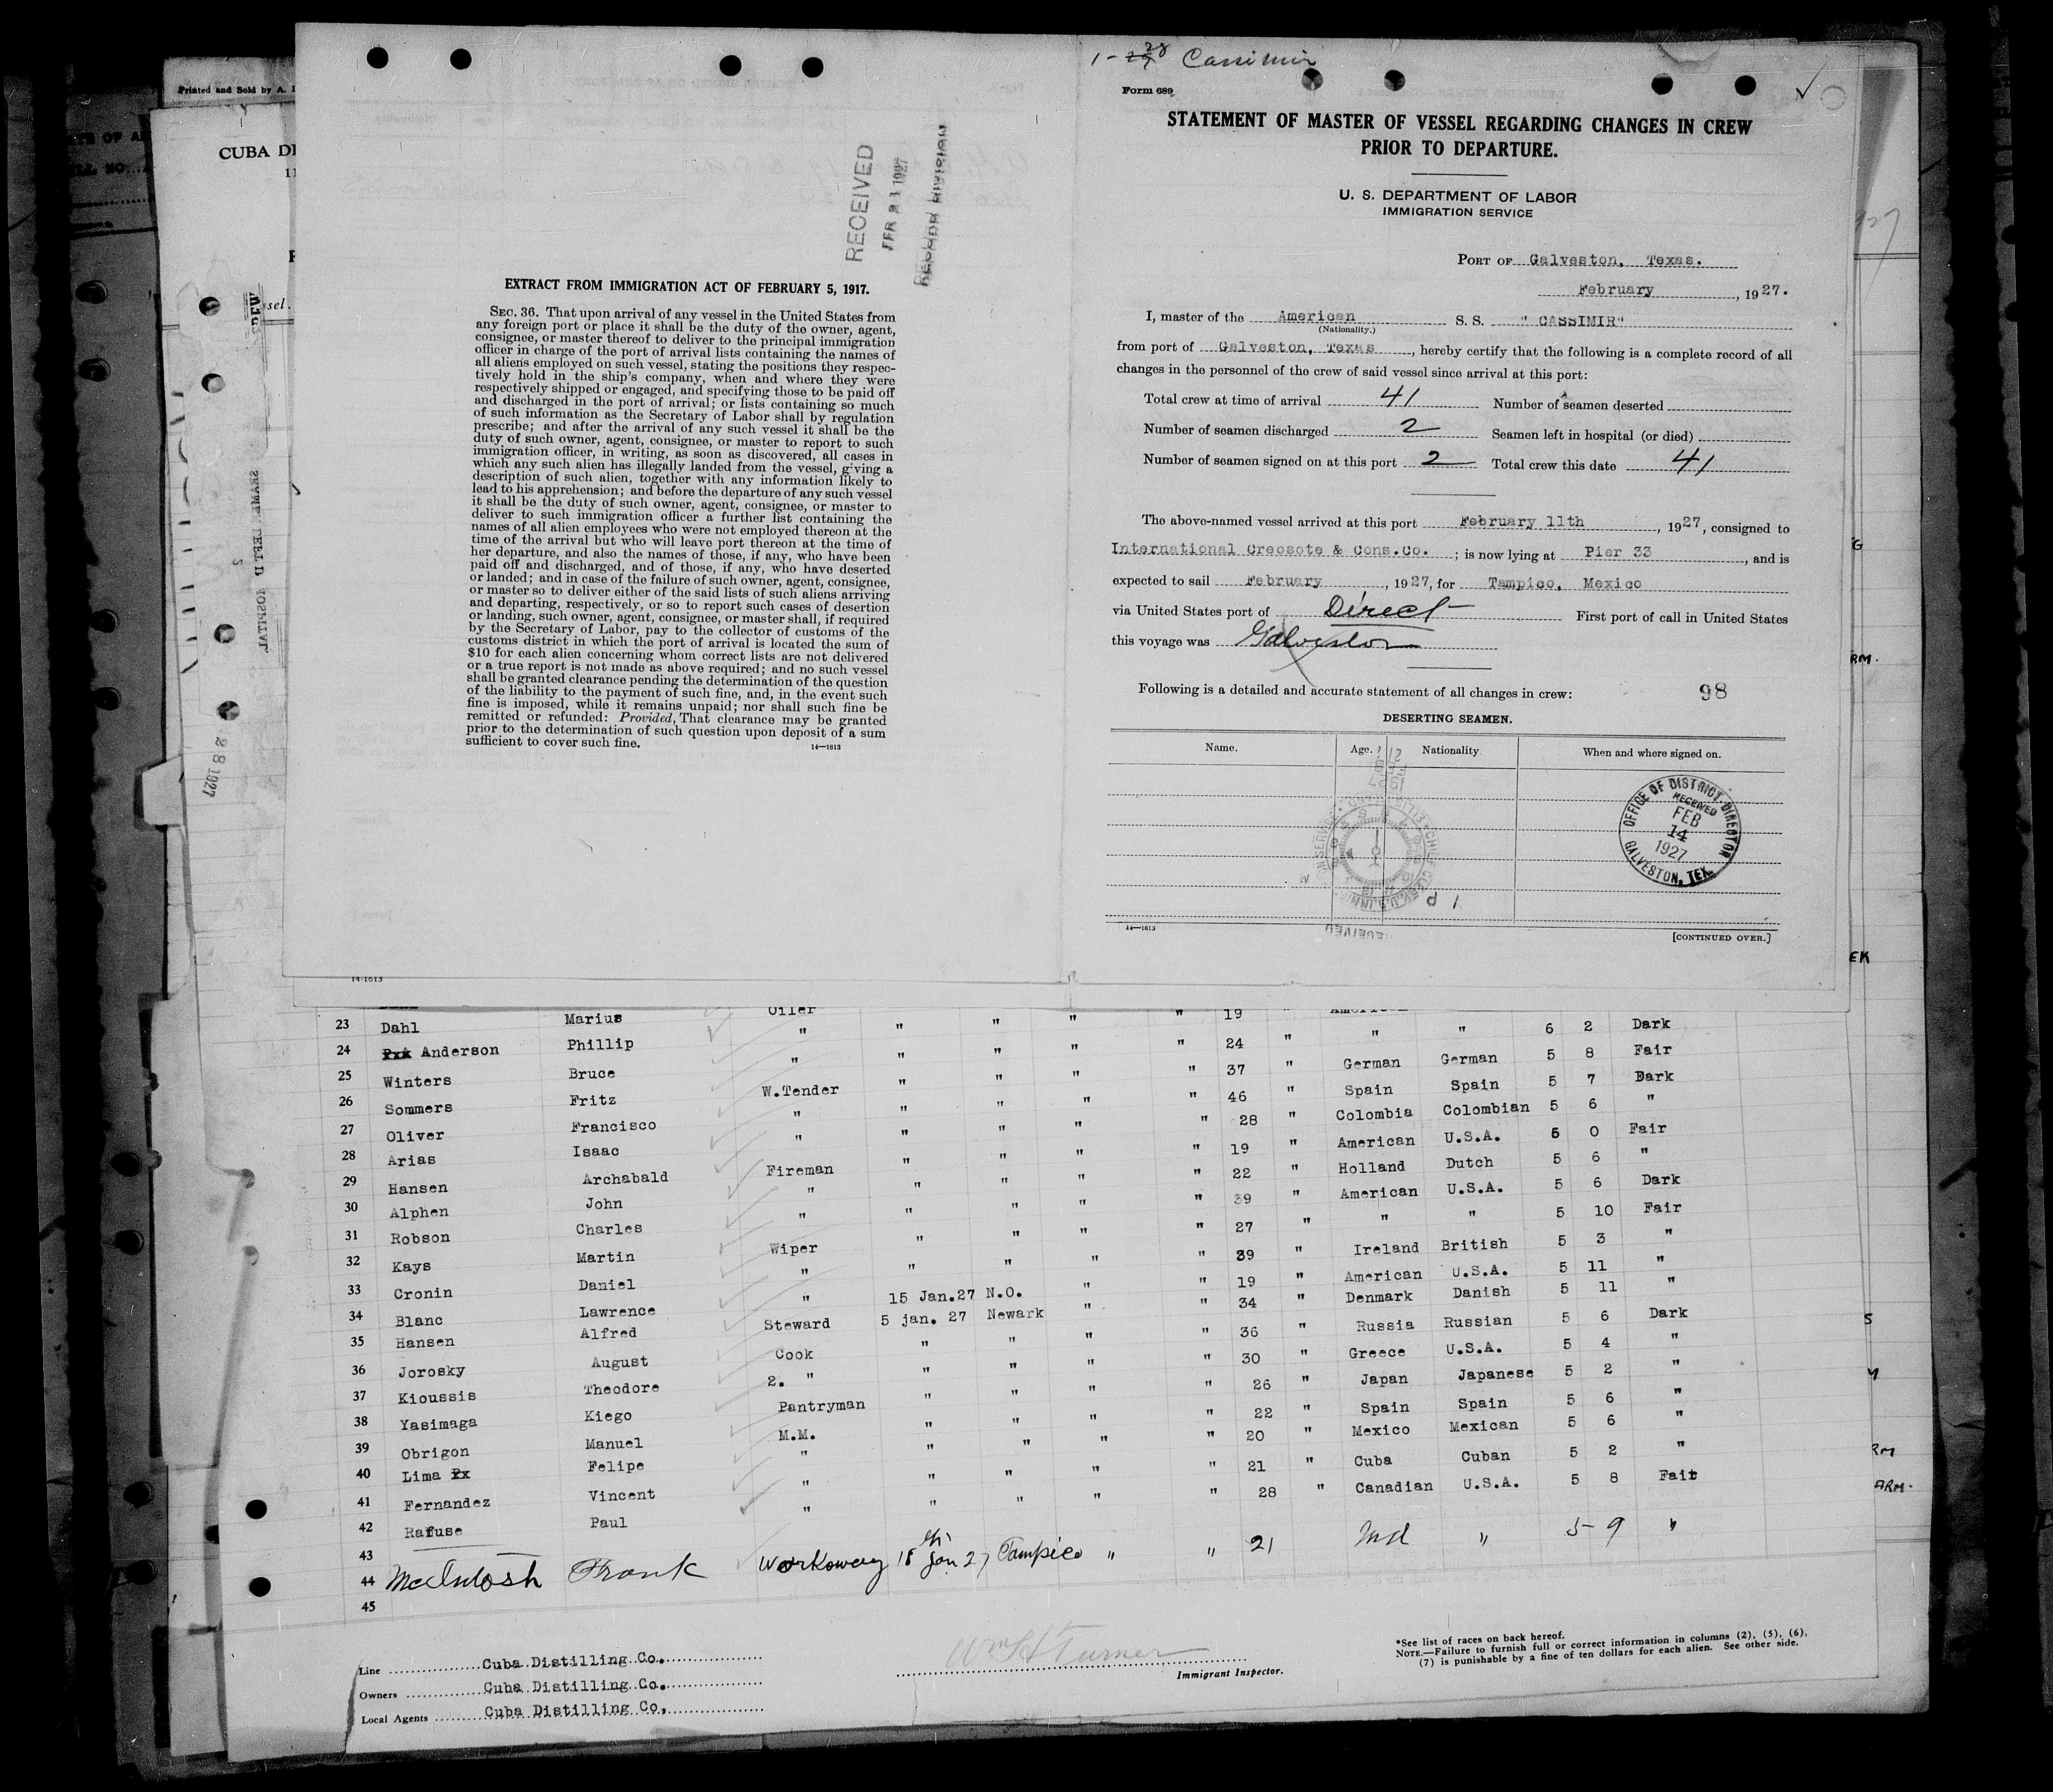 Printed and Sold by A.
CUBA DI
1-28 Cassimir
Form 689
STATEMENT OF MASTER OF VESSEL REGARDING CHANGES IN CREW
PRIOR TO DEPARTURE.
U. S. DEPARTMENT OF LABOR
IMMIGRATION SERVICE
RECEIVED
FEB 21 1927
RECORD DIVISION
EXTRACT FROM IMMIGRATION ACT OF FEBRUARY 5, 1917.
SEC. 36. That upon arrival of any vessel in the United States from
any foreign port or place it shall be the duty of the owner, agent,
consignee, or master thereof to deliver to the principal immigration
officer in charge of the port of arrival lists containing the names of
all aliens employed on such vessel, stating the positions they respec-
tively hold in the ship's company, when and where they were
respectively shipped or engaged, and specifying those to be paid off
and discharged in the port of arrival; or lists containing so much
of such information as the Secretary of Labor shall by regulation
prescribe; and after the arrival of any such vessel it shall be the
duty of such owner, agent, consignee, or master to report to such
immigration officer, in writing, as soon as discovered, all cases in
which any such alien has illegally landed from the vessel, giving a
description of such alien, together with any information likely to
lead to his apprehension; and before the departure of any such vessel
it shall be the duty of such owner, agent, consignee, or master to
deliver to such immigration officer a further list containing the
names of all alien employees who were not employed thereon at the
time of the arrival but who will leave port thereon at the time of
her departure, and also the names of those, if any, who have been
paid off and discharged, and of those, if any, who have deserted
or landed; and in case of the failure of such owner, agent, consignee,
or master so to deliver either of the said lists of such aliens arriving
and departing, respectively, or so to report such cases of desertion
or landing, such owner, agent, consignee, or master shall, if required
by the Secretary of Labor, pay to the collector of customs of the
customs district in which the port of arrival is located the sum of
$10 for each alien concerning whom correct lists are not delivered
or a true report is not made as above required; and no such vessel
shall be granted clearance pending the determination of the question
of the liability to the payment of such fine, and, in the event such
fine is imposed, while it remains unpaid; nor shall such fine be
remitted or refunded: Provided, That clearance may be granted
prior to the determination of such question upon deposit of a sum
sufficient to cover such fine. 14—1613
PORT OF Galveston, Texas.
February, 1927.
I, master of the American S. S. " CASSIMIR"
(Nationality.)
from port of Galveston, Texas, hereby certify that the following is a complete record of all
changes in the personnel of the crew of said vessel since arrival at this port:
Total crew at time of arrival 41 Number of seamen deserted
Number of seamen discharged 2 Seamen left in hospital (or died)
Number of seamen signed on at this port 2 Total crew this date 41
The above-named vessel arrived at this port February 11th, 1927, consigned to
International Creosote & Cons.Co. ; is now lying at Pier 33, and is
expected to sail February, 1927, for Tampico, Mexico
via United States port of Direct First port of call in United States
this voyage was Galveston
Following is a detailed and accurate statement of all changes in crew: 98
DESERTING SEAMEN.
Name. Age. Nationality. When and where signed on.
OFFICE OF DISTRICT DIRECTOR
RECEIVED
FEB
14
1927
GALVESTON, TEX.
14—1613 [CONTINUED OVER.]
14-1613
23 Dahl Marius Oiler
24 Anderson Phillip " " " " " 19 " American
25 Winters Bruce " " " " " 24 " " " 6 2 Dark
26 Sommers Fritz W.Tender " " " " 37 " German German 5 8 Fair
27 Oliver Francisco " " " " " 46 " Spain Spain 5 7 Dark
28 Arias Isaac " " " " " 28 " Colombia Colombian 5 6 "
29 Hansen Archabald Fireman " " " " 19 " American U.S.A. 5 0 Fair
30 Alphen John " " " " " 22 " Holland Dutch 5 6 "
31 Robson Charles " " " " " 39 " American U.S.A. 5 6 Dark
32 Kays Martin Wiper " " " " 27 " " " 5 10 Fair
33 Cronin Daniel " " " " " 39 " Ireland British 5 3 "
34 Blanc Lawrence " 15 Jan.27 N.O. " " 19 " American U.S.A. 5 11 "
35 Hansen Alfred Steward 5 jan. 27 Newark " " 34 " Denmark Danish 5 11 "
36 Jorosky August Cook " " " " 36 " Russia Russian 5 6 Dark
37 Kioussis Theodore 2. " " " " " 30 " Greece U.S.A. 5 4 "
38 Yasimaga Kiego Pantryman " " " " 26 " Japan Japanese 5 2 "
39 Obrigon Manuel M.M. " " " " 22 " Spain Spain 5 6 "
40 Lima Felipe " " " " " 20 " Mexico Mexican 5 6 "
41 Fernandez Vincent " " " " " 21 " Cuba Cuban 5 2 "
42 Rafuse Paul " " " " " 28 " Canadian U.S.A. 5 8 Fair
43
44 McIntosh Frank Workaway 18th Jan 27 Tampico " " 21 Ind " 5-9 "
45
Line Cuba Distilling Co.
Owners Cuba Distilling Co.
Local Agents Cuba Distilling Co.
Wm H Turner
Immigrant Inspector.
*See list of races on back hereof.
NOTE.—Failure to furnish full or correct information in columns (2), (5), (6),
(7) is punishable by a fine of ten dollars for each alien. See other side.